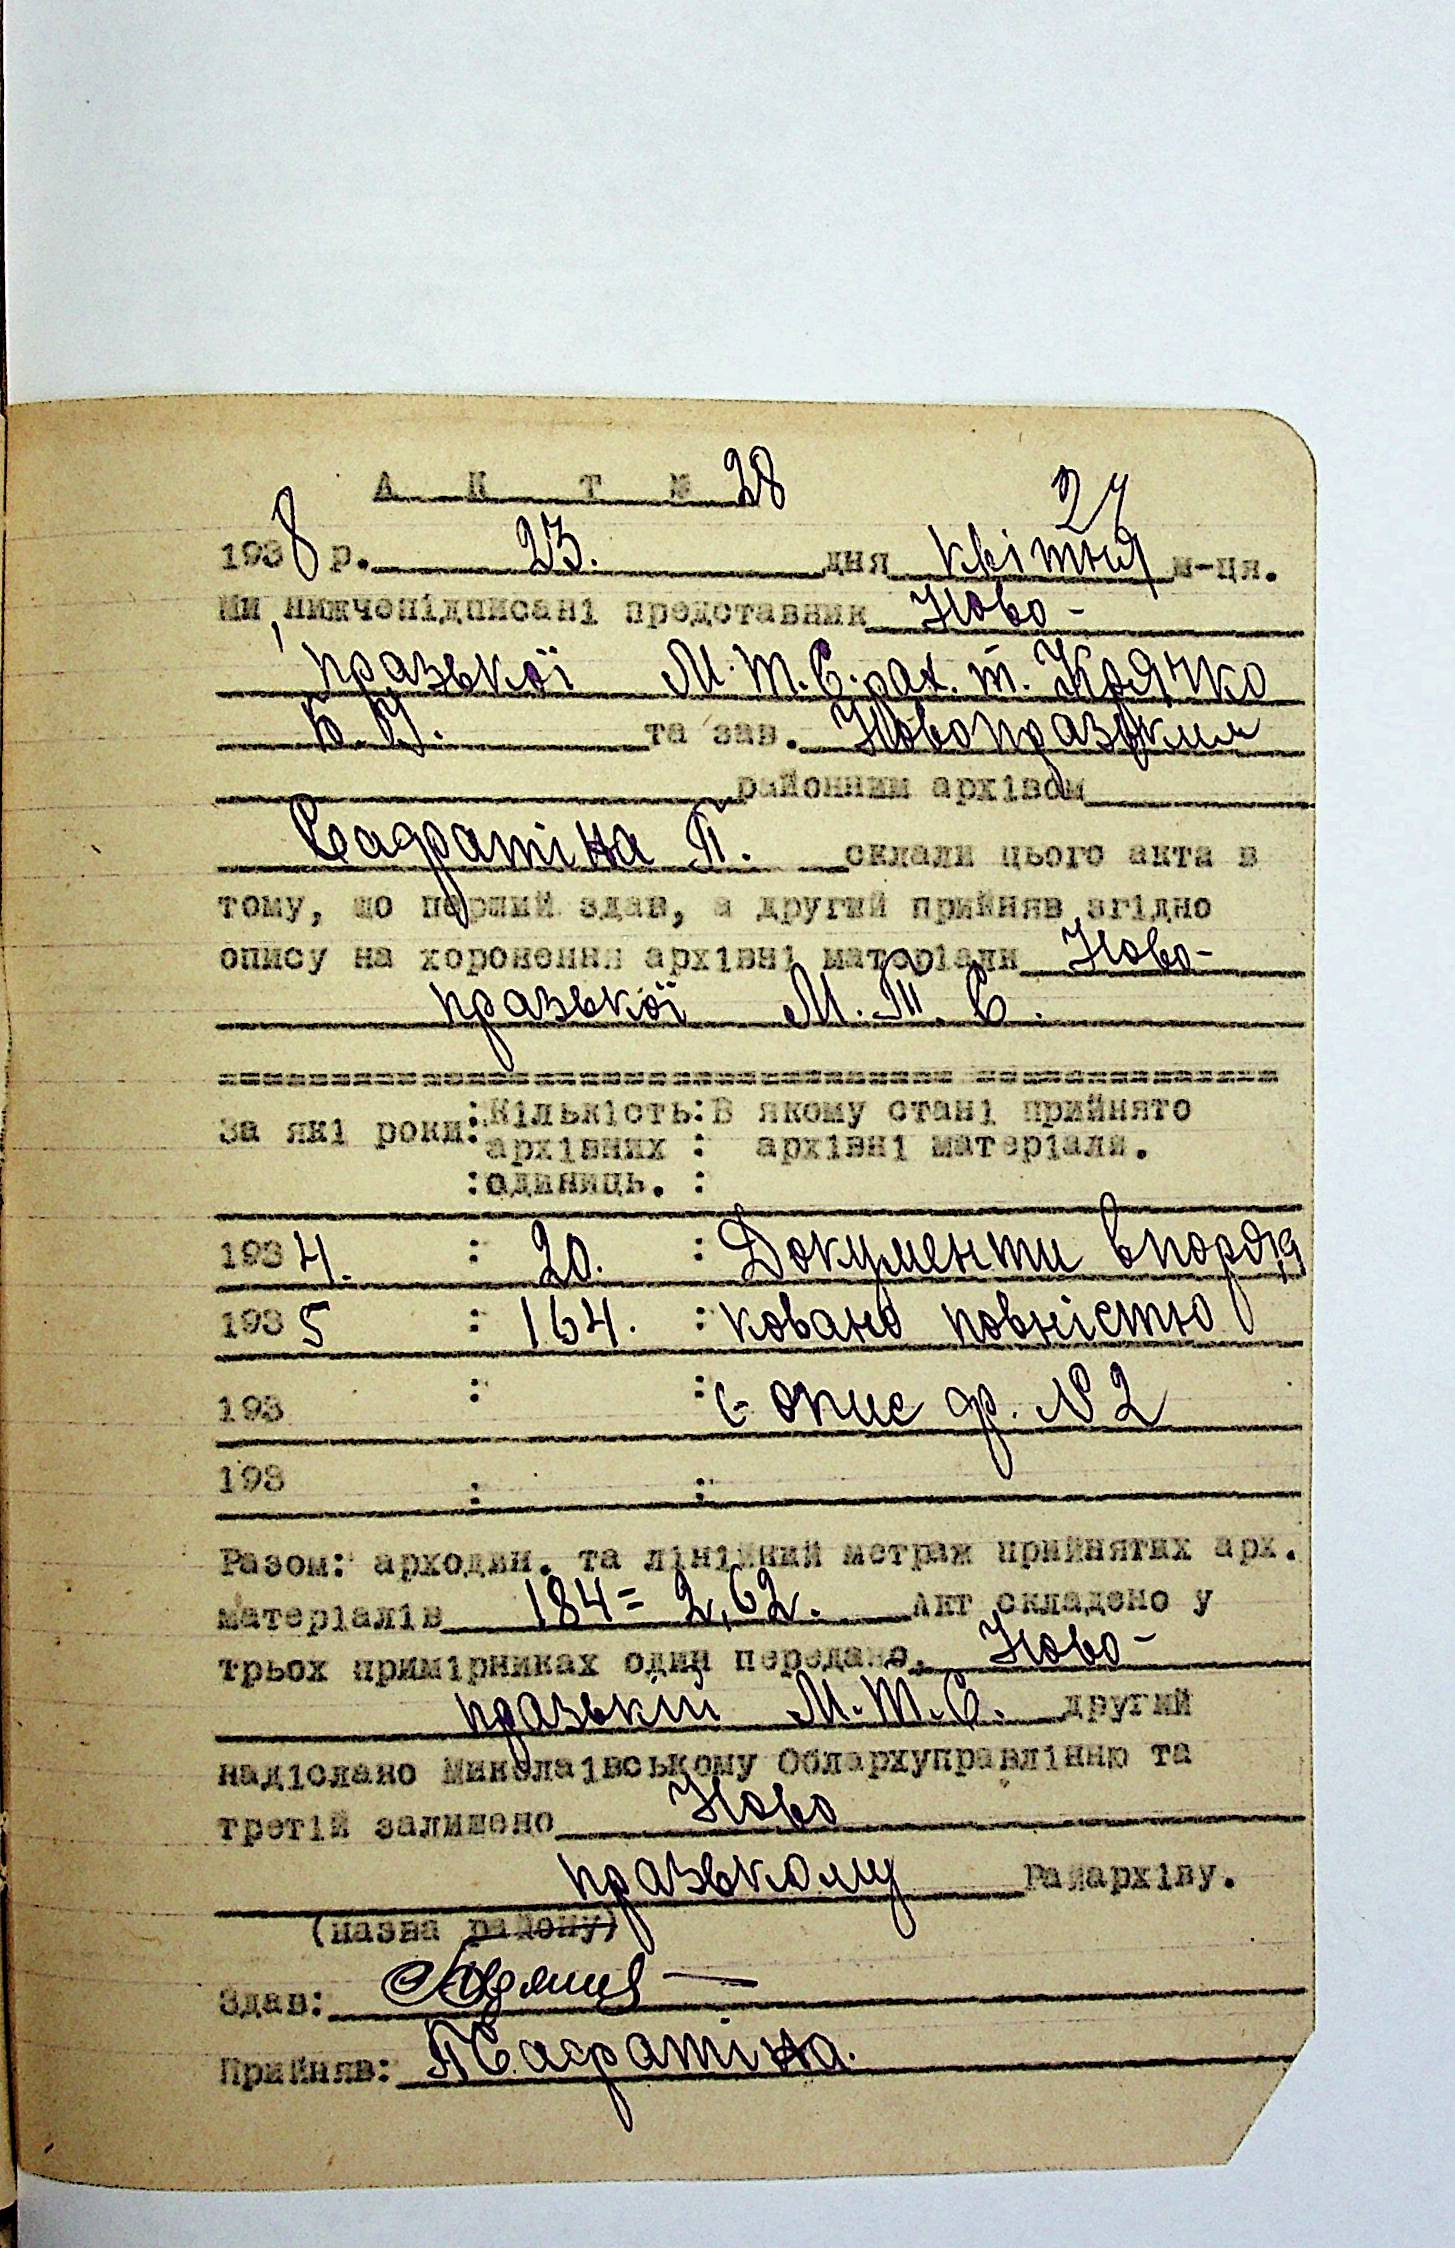 А К Т № 28
27
1938 р. 23. дня квітня м-ця.
Ми, нижчепідписані представник Ново-
празької М.Т.С. рах. т.
та зав. Новопразьким
районним архівом
П. склали цього акта в
тому, що перший здав, а другий прийняв згідно
опису на хоронення архівні матеріали Ново-
празької М.Т.С.
За які роки: Кількість: В якому стані прийнято
архівних : архівні матеріали.
: одиниць. :
1934. : 20. : Документи впоряд
1935 : 164. : ковано повністю
193 : : опис ф. № 2
193 : :
Разом: арходин. та лінійний метраж прийнятих арх.
матеріалів 184 = 2,62. Акт складено у
трьох примірниках один передано, Ново-
празькій М.Т.С. другий
надіслано Миколаївському Облархуправлінню та
третій залишено Ново
празькому Райархіву.
(назва району)
Здав:
Прийняв: